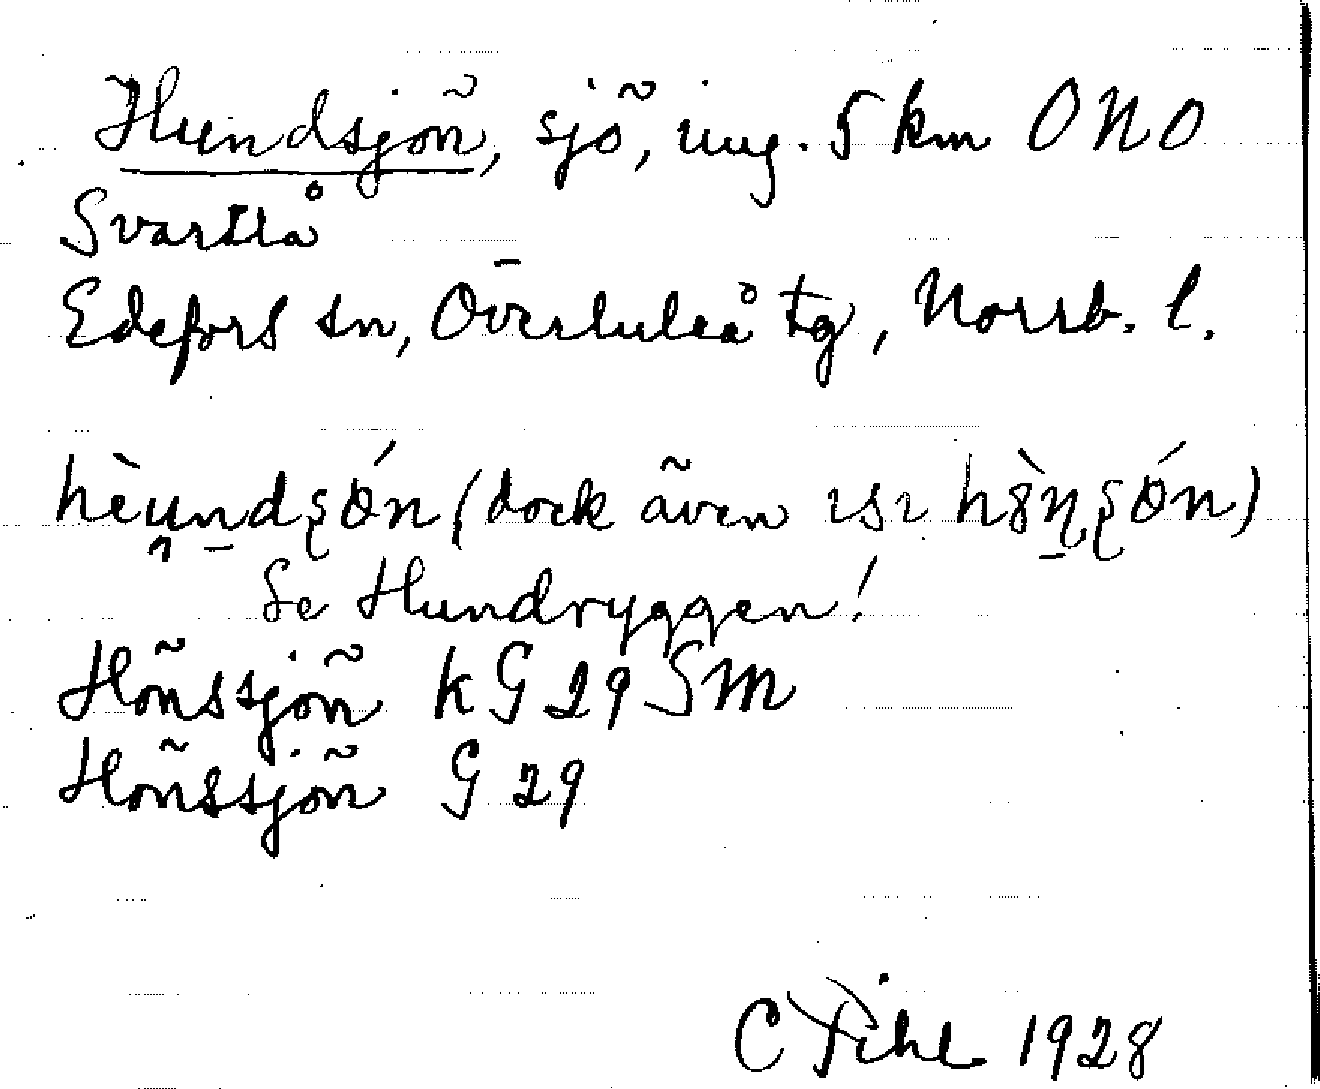 Hundsjön, sjö, ung. 5 km ONO
Svartlå
Edefors sn, Överluleå tg, Norrb. l.
(dock även
Se Hundryggen!
Hönssjön kG 29 SM
Hönssjön G 29
C Pihl 1928